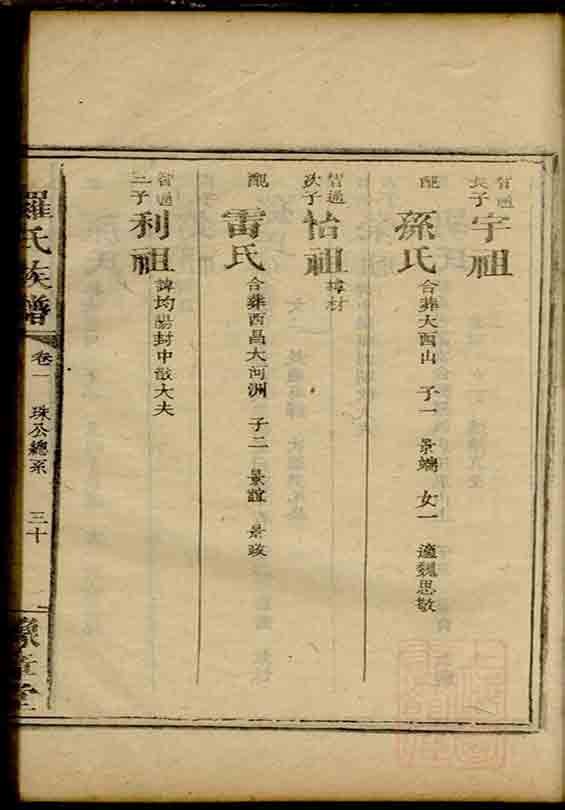 智通長子 宇祖
配 孫氏 合葬大西山 子一 景端 女一 適魏思敬
智通次子 怡祖 諱材
配 雷氏 合葬西昌大河洲 子二 景誼 景政
智通三子 利祖 諱均賜封中散大夫
羅氏族譜 卷一 珠公總系 三十
豫章堂